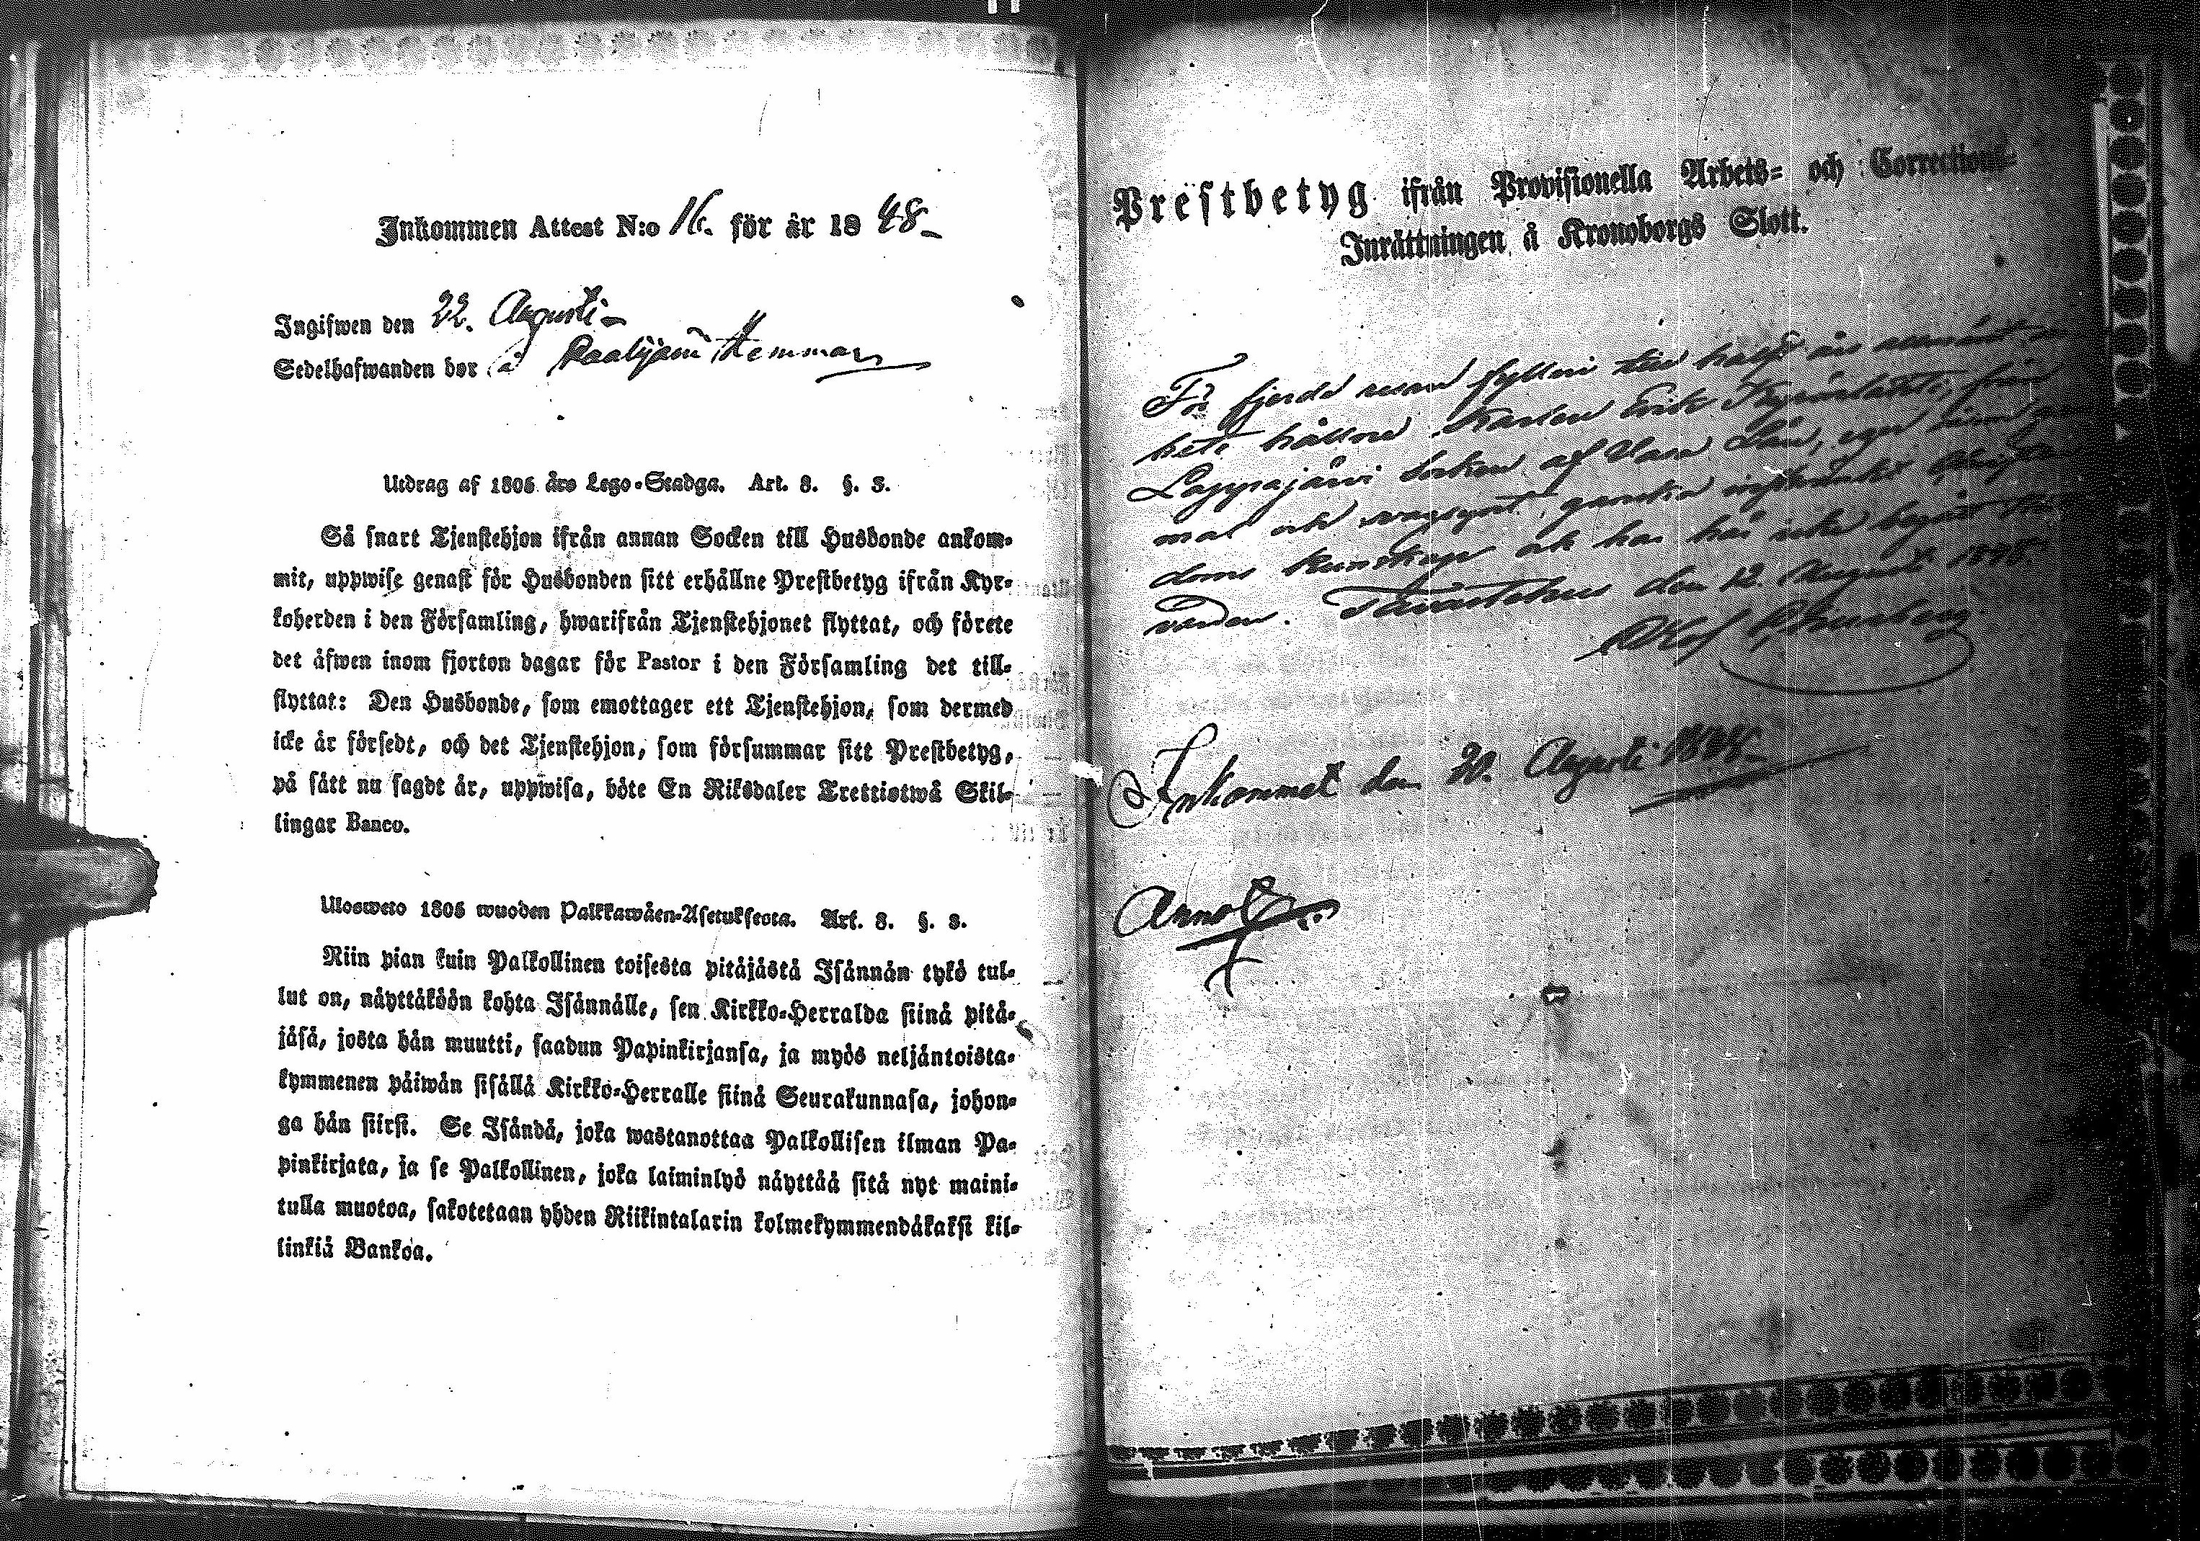 Inkommen Attest N:o 16. för år 1848_
Ingifwen den 22. Augusti_
Sedelhafwanden bor å Kaalijärvi Hemman
Utdrag af 1805 års Lego-Stadga. Art. 8. §. 3.
Så snart Tjenstehjon ifrån annan Socken till Husbonde ankom-
mit, uppwise genast för Husbonden sitt erhållne Prestbetyg ifrån Kyr-
koherden i den Församling, hwarifrån Tjenstehjonet flyttat, och förete
det äfwen inom fjorton dagar för Pastor i den Församling det till-
flyttat: Den Husbonde, som emottager ett Tjenstehjon, som dermed
icke är försedt, och det Tjenstehjon, som försummar sitt Prestbetyg,
på sätt nu sagdt är, uppwisa, böte En Riksdaler Trettiotwå Skil-
lingar Banco.
Ulosweto 1805 wuoden Palkkawäen-Asetuksesta. Art. 8. §. 3.
Niin pian kuin Palkollinen toisesta pitäjästä Isännän tykö tul-
lut on, näyttäköön kohta Isännälle, sen Kirkko-Herralda siinä pitä-
jäsä, josta hän muutti, saadun Papinkirjansa, ja myös neljäntoista-
kymmenen päiwän sisällä Kirkko-Herralle siinä Seurakunnasa, johon-
ga hän siirsi. Se Isändä, joka wastanottaa Palkollisen ilman Pa-
pinkirjata, ja se Palkollinen, joka laiminlyö näyttää sitä nyt maini-
tulla muotoa, sakotetaan yhden Riikintalarin kolmekymmendäkaksi kil-
linkiä Bankoa.
Prestbetyg ifrån Provisionella Arbets- och Corrections-
Inrättningen å Kronoborgs Slott.
För fjerde resan fylleri till halft års allmänt
bete hållne Karlen Erik från
Lappajärvi Socken af Vasa Län, eger
mal och svagsynt, ganska
doms kunskap och har här icke begått
varden. Tavastehus den 12. Augusti 1848.
Inkommet den 20. Augusti 1848_